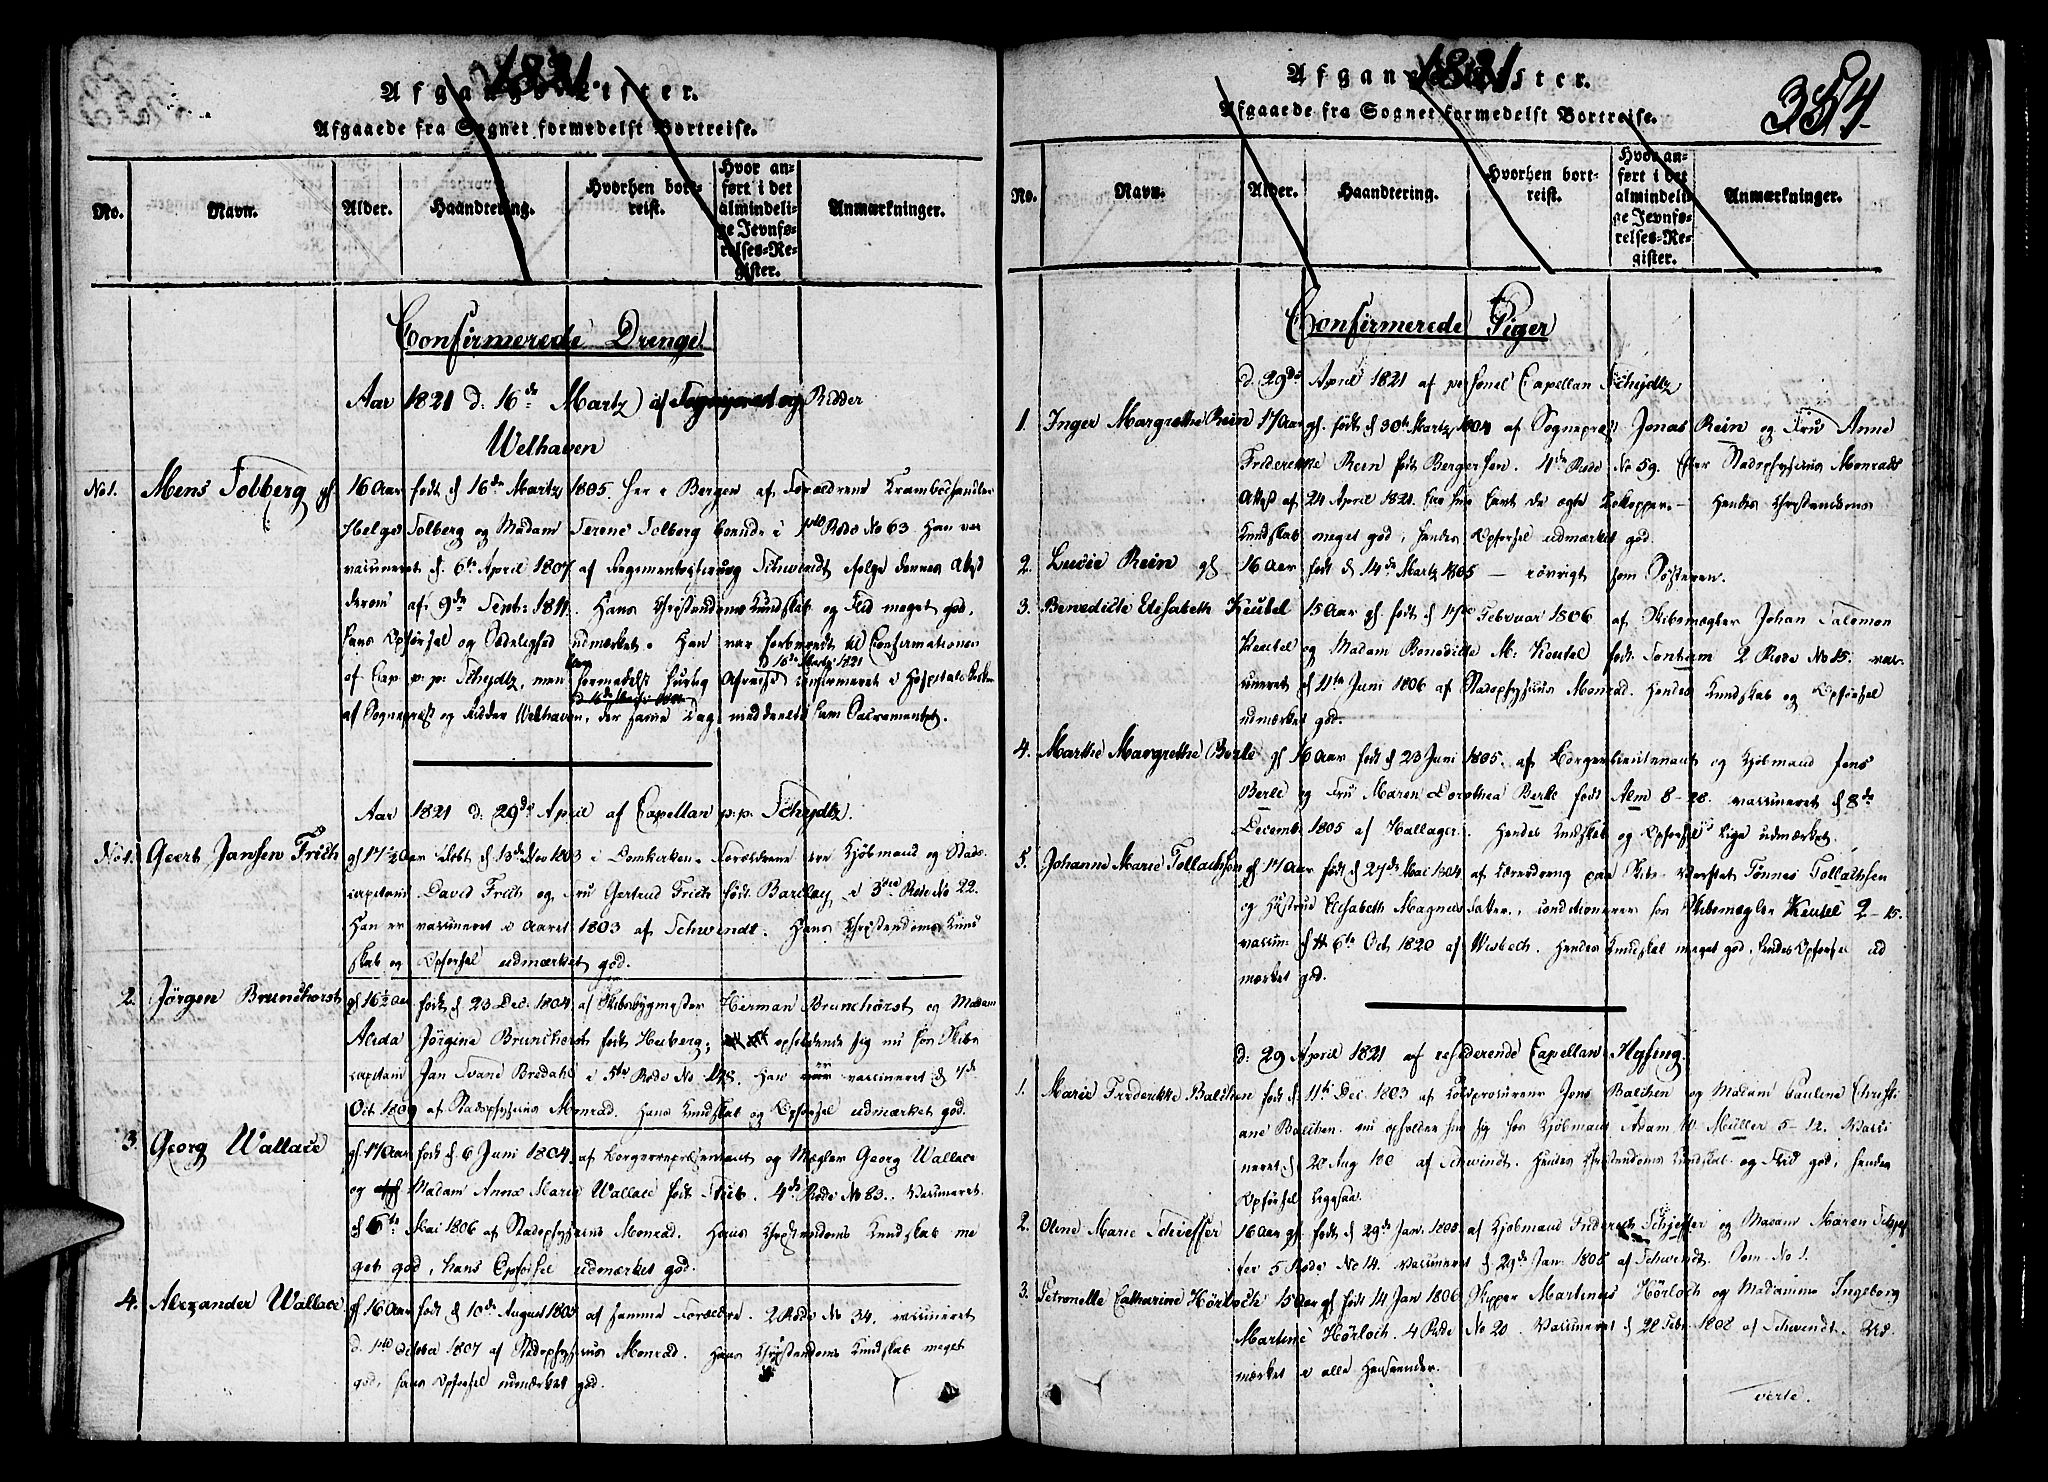 1821.
Afgangs-Lister.
Afgaaede fra Sognet formedelst Bortreise.
No.
Navn.
Alder.
Haandtering.
Hvorhen bort-
reist.
Hvor an-
ført i det
almindeli-
ge Jevnfø-
relses-Re-
gister.
Anmærkninger.
Confirmerede Drenge
Aar 1821 d. 16de Martz af Ridder
Welhaven
No 1. Mens Tolberg gl. 16 Aar født d 16de Martz 1805. her i Bergen af Forældrene Kramboehandler
Helge Tolberg og Madam Serene Tolberg boende i 1ste Rode No 63. Han var
vaccineret d. 6te April 1807 af Regimentschirurg Schwindt ifølge dennes Attest
derom af 9de Septb: 1811. Hans Christendoms Kundskab og Flid meget god,
hans Opførsel og Sædelighed udmærket. Han var forberedt til Confirmationen
af Cap. p: p: Scheydtz, men formedelst hurtig Afreise d 16de Martz 1821 confirmeret i Hospitalskirken
af Sognepræst og Ridder Welhaven, der samme Dag meddeelte ham Sacramentet.
Aar 1821 d. 29de April af Capellan p: p: Scheydtz.
No 1. Geert Jansen Frich gl 17½ Aar født d 13de Nov 1803 i Domkirken. Forældrene ere Kjøbmand og Stads-
capitain David Frich og Fru Gertrud Frich født Barclay, i 3die Rode No 22.
Han er vaccineret i Aaret 1803 af Schwindt. Hans Christendoms Kund
skab og Opførsel udmærket god.
2. Jørgen Brunchorst gl 16½ Aar født d 23 Dec. 1804 af Skibsbygmester Herman Brunchorst og Madam
Aleda Jørgine Brunchorst født Heiberg; opholdende sig nu hos Skibs
capitain Jan Svane Bredahl i 5te Rode No 128. Han vaccineret d 7de
Oct 1809 af Stadsphysicus Monrad. Hans Kundskab og Opførsel udmærket god.
3. Georg Wallace gl. 17 Aar født d. 6 Juni 1804. af Borgerrepræsentant og Mægler Georg Wallace
og Madam Anna Maria Wallace født Stub. 4de Rode No 83. Vaccineret
d 6te Mai 1806 af Stadsphysicus Monrad. Hans Christendoms Kundskab me
get god, hans Opførsel udmærket god.
4. Alexander Wallace gl 16 Aar født d 10de August 1805 af samme Forældre. 2 Rode No 34. vaccineret
d. 1ste October 1807 af Stadsphysicus Monrad. Hans Christendoms Kundskab meget
god, hans Opførsel udmærket god.
1821
Afgangs-Lister.
354.
Afgaaede fra Sognet formedelst Bortreise.
No.
Navn.
Alder.
Haandtering.
Hvorhen bort-
reist.
Hvor an-
ført i det
almindeli-
ge Jevnfø-
relses-Re-
gister.
Anmærkninger.
Confirmerede Piger
d. 29de April 1821 af personel Capellan Scheydtz
1. Inger Margrethe Rein 17 Aar gl. født d 30te Martz 1804 af Sognepræst Jonas Rein og Fru Anne
Friderikke Rein født Bergersen. 4de Rode No 59. Efter Stadsphysicus Monrads
Attest af 24 April 1821 har hun havt de ægte Kokopper. — Hendes Christendoms
Kundskab meget god, hendes Opførsel udmærket god.
2. Lucie Rein gl 16 Aar født d 14de Martz 1805 — iøvrigt som Søsteren.
3. Benedicte Elisabeth Keutel 15 Aar gl. født d 17de Februar 1806 af Skibsmægler Johan Salomon
Keutel og Madam Benedicte M. Keutel født Fonham 2 Rode No 15. vac-
cineret d 11te Juni 1806 af Stadsphysicus Monrad. Hendes Kundskab og Opførsel
udmærket god.
4. Marthe Margrethe Berle gl 16 Aar født d 23 Juni 1805. af Borgerlieutenant og Kjøbmand Jens
Berle og Fru Maren Dorothea Berle født Alm 8-28. vaccineret d 8de
Decemb 1805 af Hallager. Hendes Kundskab og Opførsel lige udmærket.
5. Johanne Marie Tollachsen gl 17 Aar født d 27de Mai 1804 af paa Skibs-Værftet Tønnes Tollachsen
og Hustrue Elisabeth Magnus Datter, conditionerer hos Skibsmægler Keutel 2-15.
vaccin- d 6te Oct 1820 af Wisbech. Hendes Kundskab meget god, hendes Opførsel ud
mærket god.
d. 29 April 1821 af residerende Capellan Hysing.
1. Marie Friderikke Balchen født d. 11te Dec. 1803 af Jens Balchen og Madam Pauline Christi
ane Balchen. nu opholder hun sig hos Kjøbmand Adam H. Müller 5-12. Vacci
neret d 20 Aug 180 af Schwindt. Hendes Christendoms Kundskab og Flid god, hendes
Opførsel ligesaa.
2. Oline Marie Scheffer 16 Aar gl. født d 29de Jan. 1805 af Kjøbmand Friderich Schieffer og Madam Maren Schief
fer 5 Rode No 14. vaccineret d 29de Jan. 1808 af Schwendt. Dom- No 1.
3. Petronelle Catharine Hörloch 15 Aar gl født 14 Jan 1806 Skipper Martinus Hörloch og Madamme Ingeborg
Martine Hörloch. 4 Rode No 20. Vaccineret d 28 Febr 1808 af Schwendt. Ud
mærket i alle Henseender.
verte.